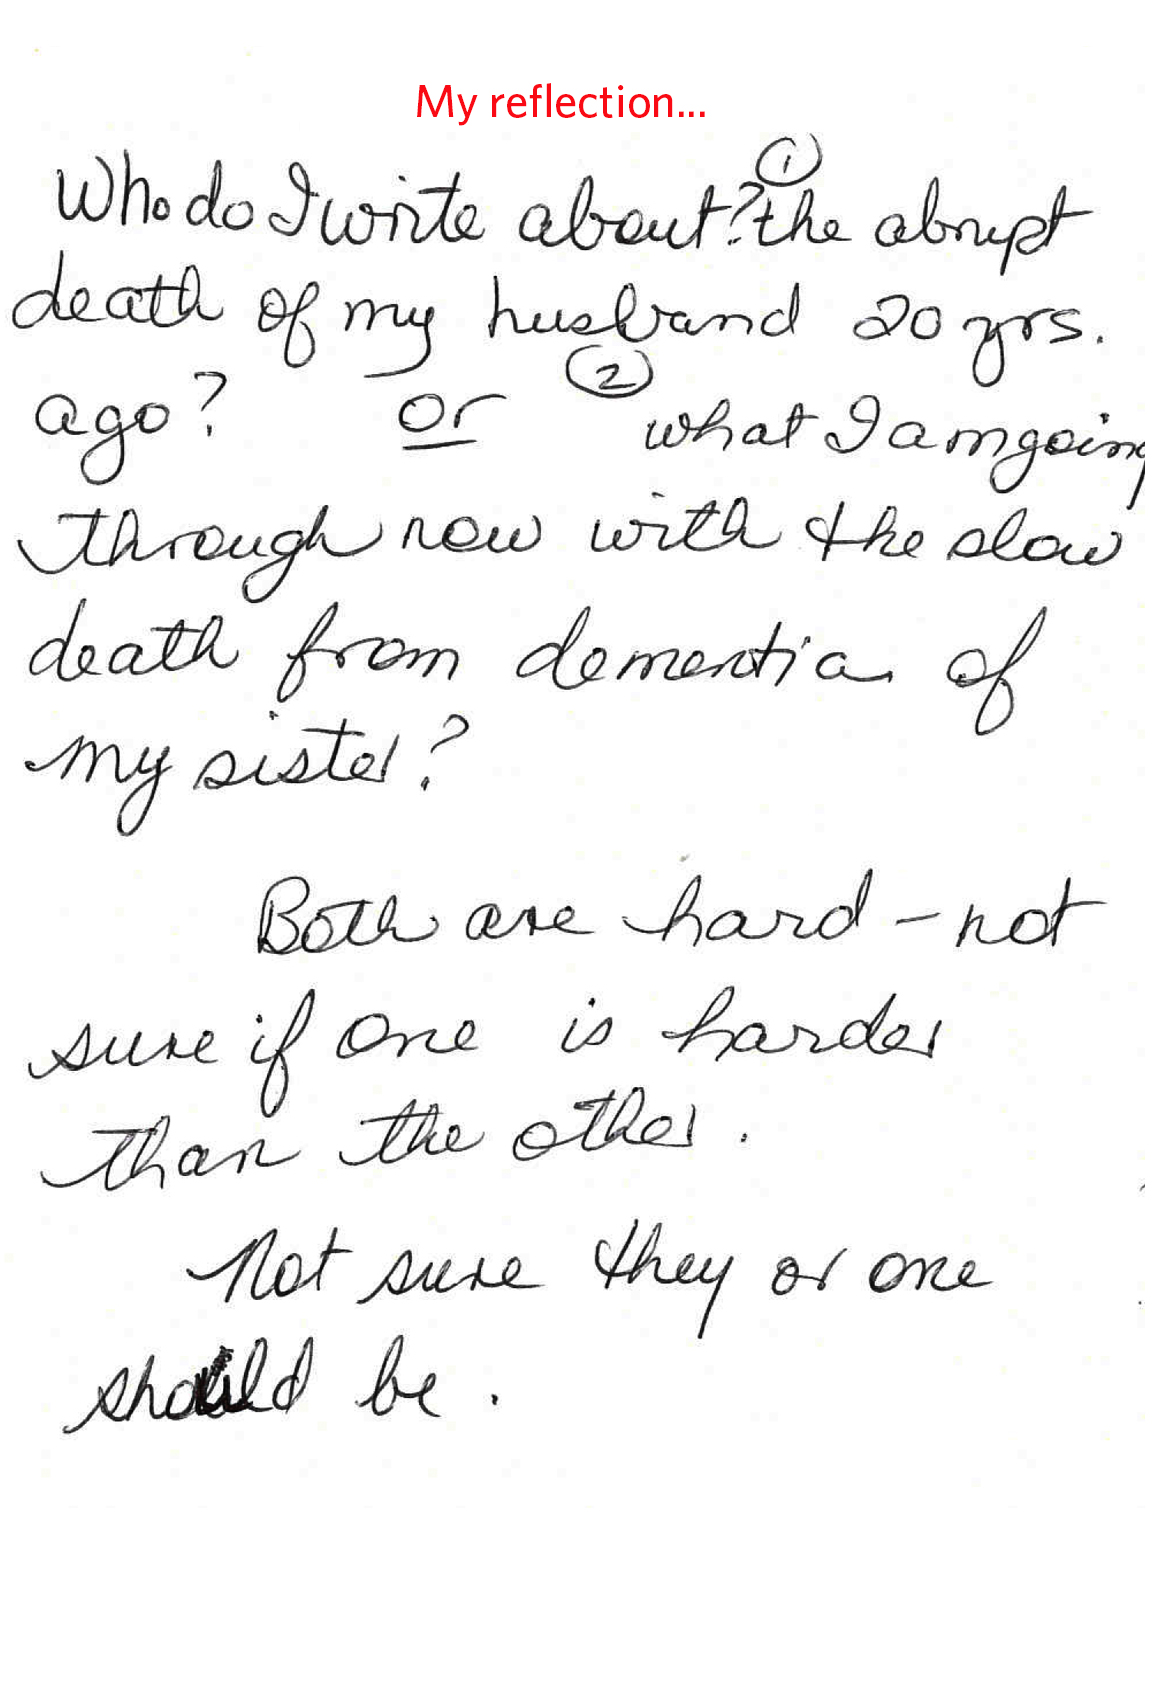 My reflection...
Who do I write about? ① the abrupt
death of my husband 20 yrs.
ago? or ② what I am going
through now with the slow
death from dementia of
my sister?
Both are hard - not
sure if one is harder
than the other.
Not sure they or one
should be.